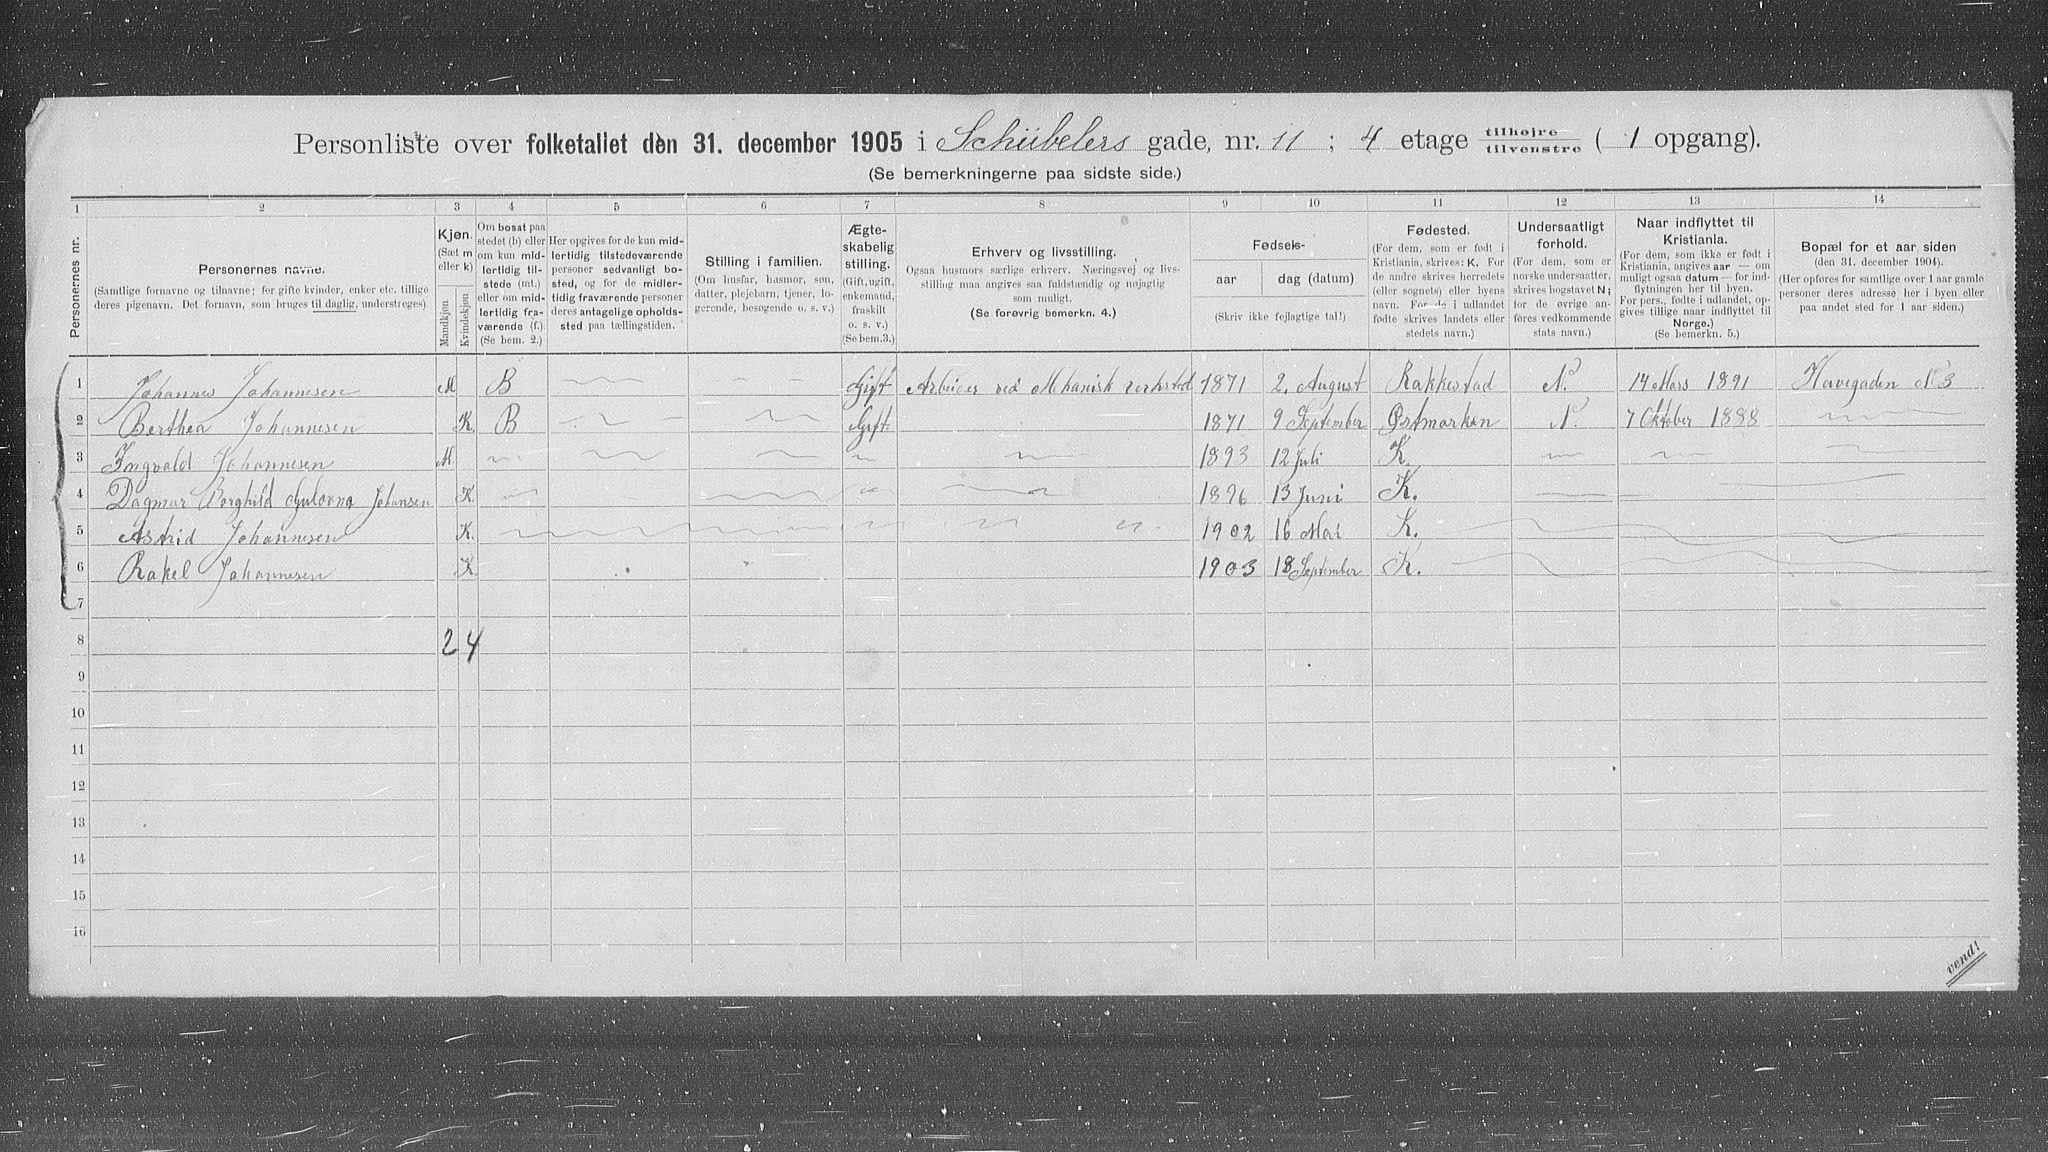 Personliste over folketallet den 31. december 1905 i Schübelers gade, nr. 11 ; 4 etage tilhøjre tilvenstre ( 1 opgang).
(Se bemerkningerne paa sidste side.)
1 2 3 4 5 6 7 8 9 10 11 12 13 14
Personernes nr.
Personernes navne.
(Samtlige fornavne og tilnavne; for gifte kvinder, enker etc. tillige
deres pigenavn. Det fornavn, som bruges til daglig, understreges).
Kjøn.
(Sæt m
eller k)
Mandkjøn
Kvindekjøn
Om bosat paa
stedet (b) eller
om kun mid-
lertidig til-
stede (mt.)
eller om mid-
lertidig fra-
værende (f.)
(Se bem. 2.)
Her opgives for de kun mid-
lertidig tilstedeværende
personer sedvanligt bo-
sted, og for de midler-
tidig fraværende personer
deres antagelige opholds-
sted paa tællingstiden.
Stilling i familien.
(Om husfar, hasmor, søn,
datter, plejebarn, tjener, lo-
gerende, besøgende o. s. v.)
Ægte-
skabelig
stilling.
(Gift, ugift,
enkemand,
fraskilt
o. s. v.)
(Se bem.3.)
Erhverv og livsstilling.
Ogsaa husmors særlige erhverv. Næringsvej og livs-
stilling maa angives saa fuldstændig og nøjagtig
som muligt.
(Se forøvrig bemerkn. 4.)
Fødsels-
aar
dag (datum)
(Skriv ikke fejlagtige tal!)
Fødested.
(For dem, som er født i
Kristiania, skrives: K. For
de andre skrives herredets
(eller sognets) eller byens
navn. For de i udlandet
fødte skrives landets eller
stedets navn.)
Undersaatligt
forhold.
(For dem, som er
norske undersaatter,
skrives bogstavet N;
for de øvrige an-
føres vedkommende
stats navn.)
Naar indflyttet til
Kristiania.
(For dem, som ikke er født i
Kristiania, angives aar — om
muligt ogsaa datum — for ind-
flytningen her til byen.
For pers., fødte i udlandet, op-
gives tillige naar indflyttet til
Norge.)
(Se bemerkn. 5.)
Bopæl for et aar siden
(den 31. december 1904).
(Her opføres for samtlige over 1 aar gamle
personer deres adresse her i byen eller
paa andet sted for 1 aar siden.)
1 Johannes Johannesen M B Gift Arbeider ved Mekanisk verksted 1871 2. August Rakkestad N. 14 Mars 1891 Havegaden N 3
2 Berthea Johannesen K. B Gift. 1871 9 September Østmarken N. 7 Oktober 1888
3 Ingvald Johannesen M. 1893 12 Juli K.
4 Dagmar Borghild Johansen K. 1896 13 Juni K.
5 Astrid Johannesen K. 1902 16 Mai K.
6 Rakel Johannesen K. 1903 18 September K.
7
8 2 4
9
10
11
12
13
14
15
16
vend!